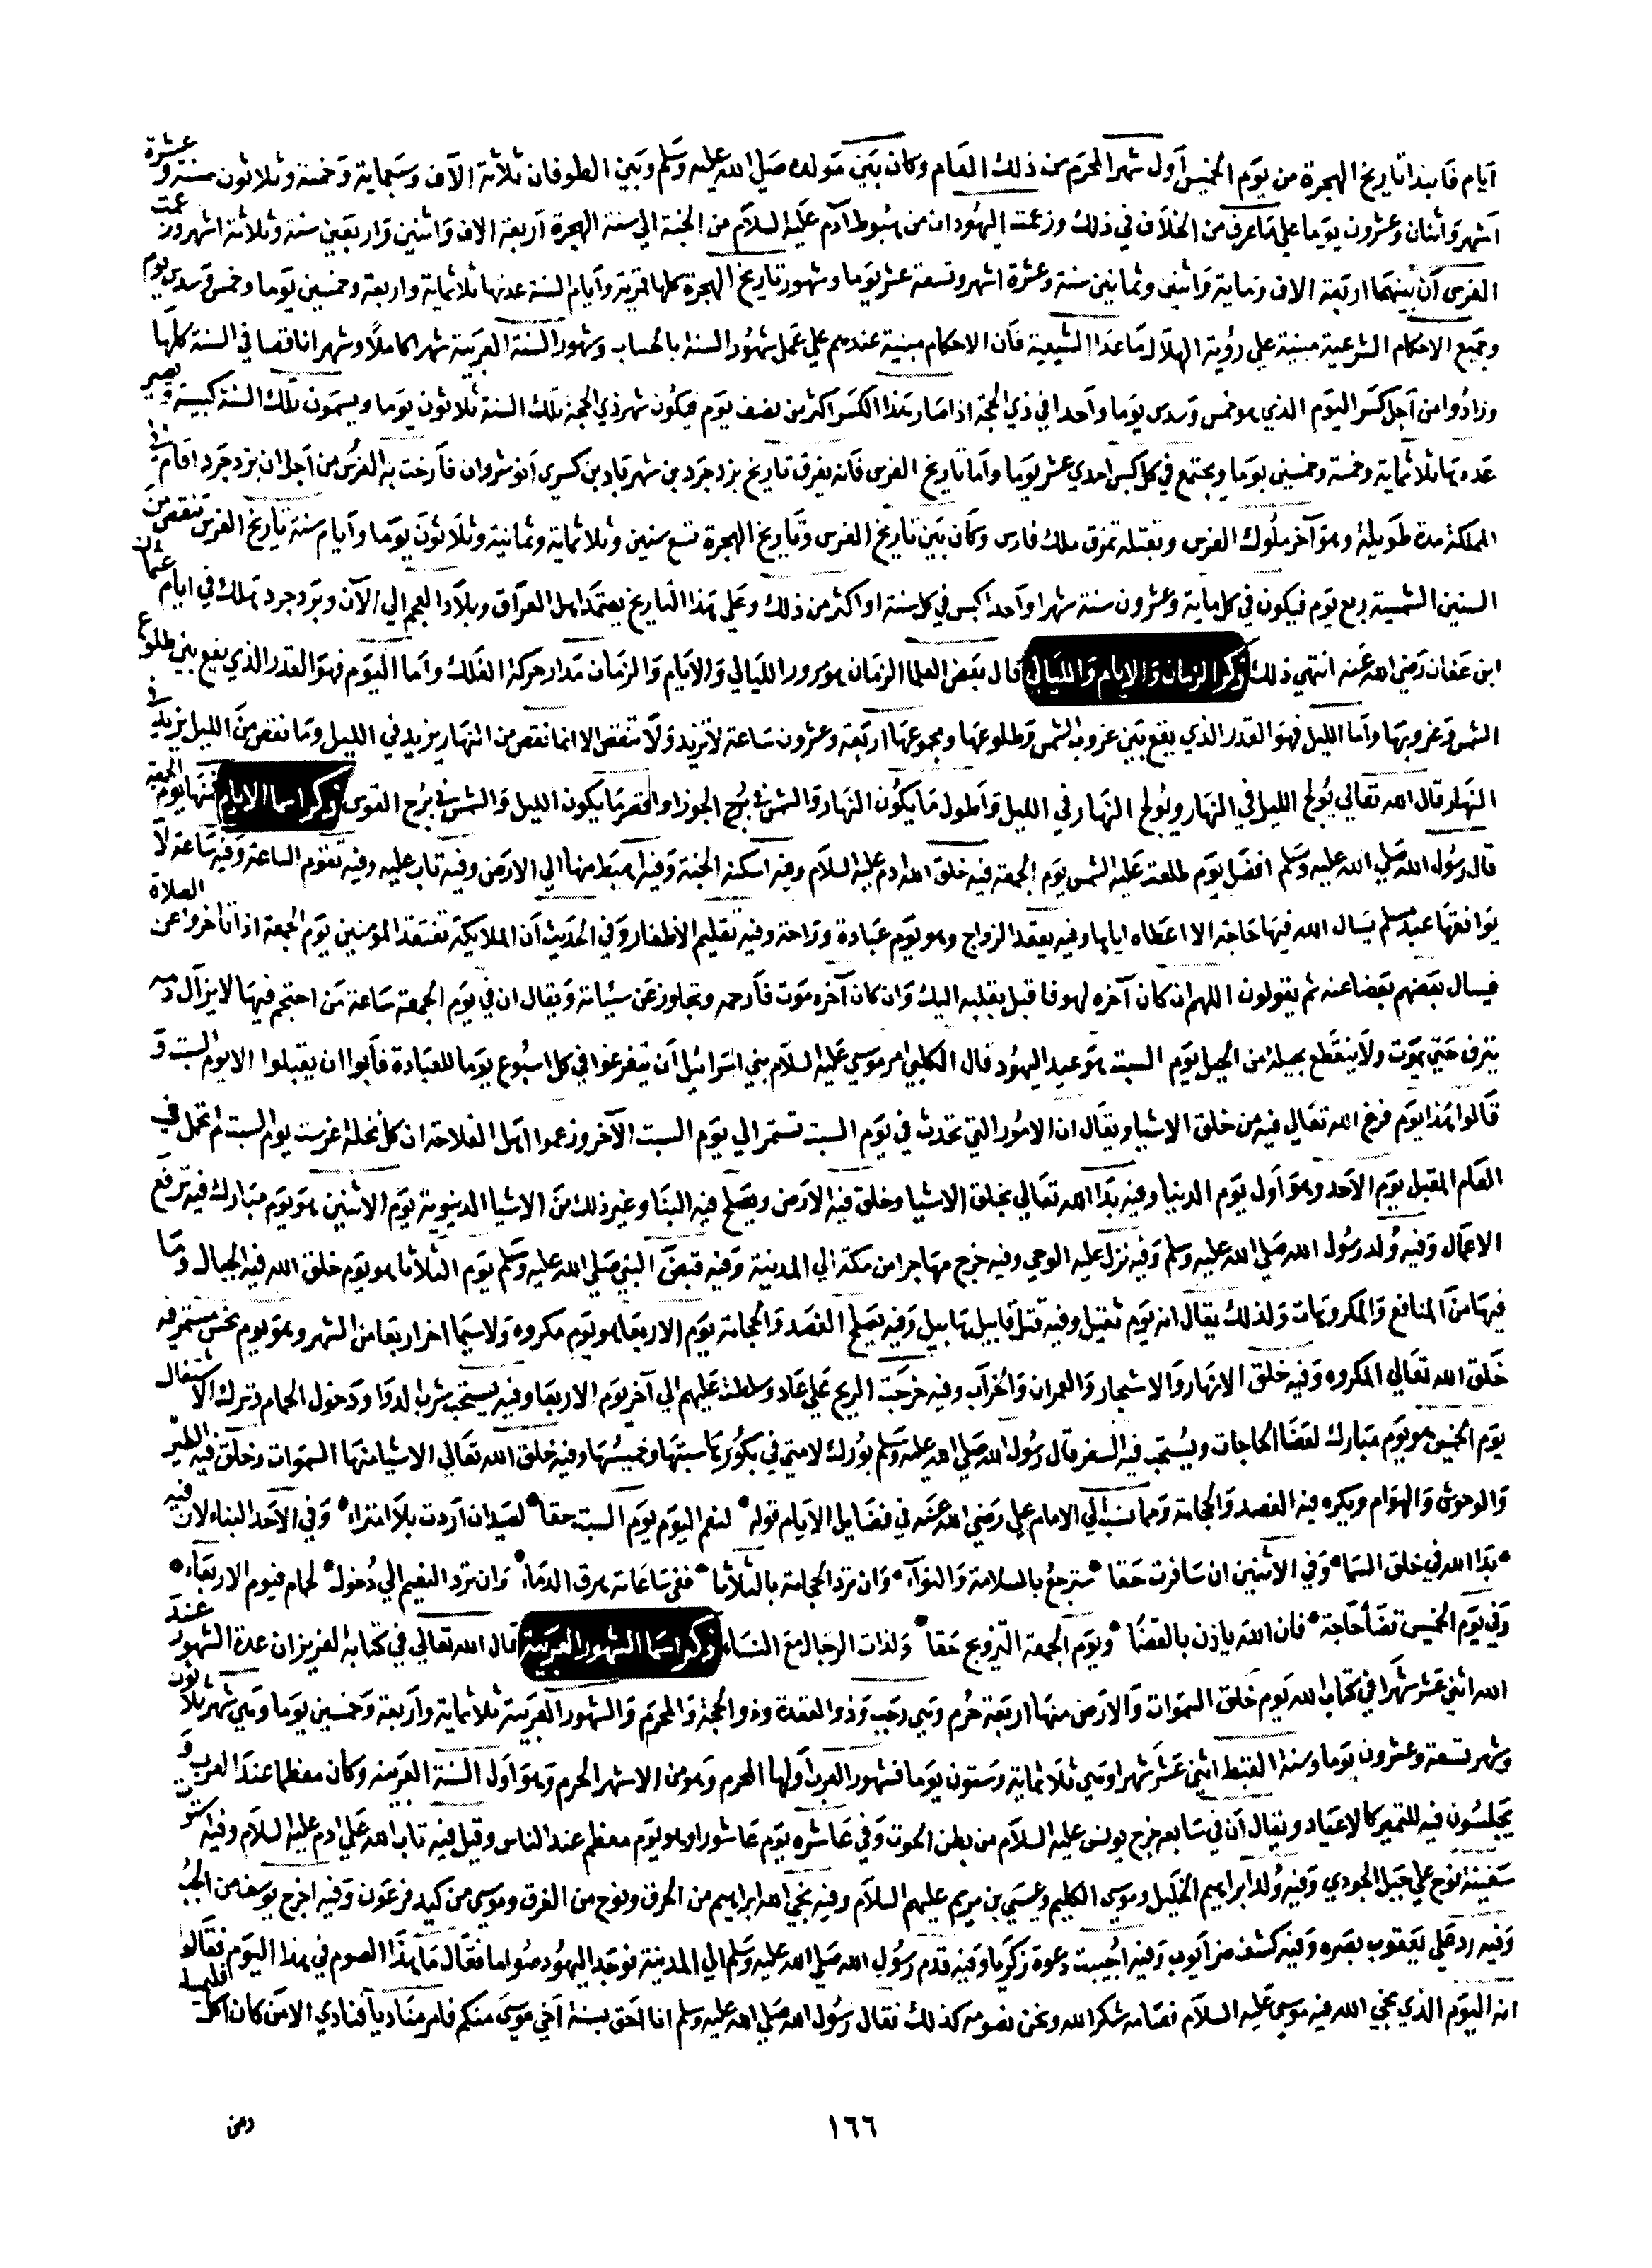 ايام فابتدا تاريخ الهجرة من يوم الخميس اول شهر المحرم من ذلك العام وكان بين مولده صلي الله عليه وسلم وبين الطوفان ثلاثة الاف وسبعماية وخمسة وثلاثون سنة وعشرة
اشهر واثنان وعشرون يوما علي ما عرف من الخلاف في ذلك وزعمت اليهود ان من هبوط آدم عليه السلام من الجنة الي سنة الهجرة اربعة الاف واثنين واربعين سنة وثلاثة اشهر وزعمت
الفرس ان بينهما اربعة الاف وماية واثنين وثمانين سنة وعشرة اشهر وتسعة عشر يوما وشهور تاريخ الهجرة كلها قمرية وايام السنة عدتها ثلاثماية واربعة وخمسين يوما وخمس وسدس يوم
وجميع الاحكام الشرعية مبنية علي رؤية الهلال ما عدا الشيعية فان الاحكام مبنية عندهم علي عمل شهور السنة بالحساب وشهور السنة العربية شهرا كاملا وشهرا ناقصا في السنة كلها
وزادوا من اجل كسر اليوم الذي هو خمس وسدس يوما واحدا في ذي الحجة اذا صار هذا الكسر اكثر من نصف يوم فيكون شهر ذي الحجة تلك السنة ثلاثون يوما ويسمون تلك السنة كبيسة ويصير
عددها ثلاثماية وخمسة وخمسين يوما ويجتمع في كل كبس احدي عشر يوما واما تاريخ الفرس فانه يعرف تاريخ يزدجرد بن شهرياد بن كسري انوشروان فارخت به الفرس من اجل ان يزدجرد اقام في
المملكة مدة طويلة وهو آخر ملوك الفرس وبقتله تمزق ملك فارس وكان بين تاريخ الفرس وتاريخ الهجرة تسع سنين وثلاثماية وثمانية وثلاثون يوما وايام سنة تاريخ الفرس تنقص من
السنين الشمسية ربع يوم فيكون في كل ماية وعشرون سنة شهرا واحدا كبس في كل سنة او اكثر من ذلك وعلي هذا التاريخ يعتمد اهل العراق وبلاد العجم الي الآن ويزدجرد هلك في ايام عثمان
ابن عفان رضي الله عنه انتهي ذلك ذكر الزمان والايام والليالي قال بعض العلما الزمان هو مرور الليالي والايام والزمان مدار حركة الفلك واما اليوم فهو القدر الذي يقع بين طلوع
الشمس وغروبها واما الليل فهو القدر الذي يقع بين غروب الشمس وطلوعها ومجموعها اربعة وعشرون ساعة لا تزيد ولا تنقص الا انما نقص من النهار يزيد في الليل وما نقص من الليل يزيد في
النهار قال الله تعالي يولج الليل في النهار ويولج النهار في الليل واطول ما يكون النهار والشمس في برج الجوزا واقصر ما يكون الليل والشمس في برج القوس ذكر اسما الايام فمنها يوم الجمعة
قال رسول الله صلي الله عليه وسلم افضل يوم طلعت عليه الشمس يوم الجمعة فيه خلق الله ادم عليه السلام وفيه اسكنه الجنة وفيه اهبط منها الي الارض وفيه تاب عليه وفيه تقوم الساعة وفيه ساعة لا
يوافقها عبد مسلم يسال الله فيها حاجة الا اعطاه اياها وفيه يعقد الزواج وهو يوم عبادة وراحة وفيه تقليم الاظفار وفي الحديث ان الملايكة تفتقد المومنين يوم الجمعة اذا تاخروا عن الصلاة
فيسال بعضهم بعضا عنه ثم يقولون اللهم ان كان آخره لهو فاقبل بقلبه اليك وان كان آخره موت فارحمه وتجاوز عن سيئاته ويقال ان في يوم الجمعة ساعة من احتجم فيها لا يزال دمه
ينزف حتي يموت ولا ينقطع بحيلة من الحيل يوم السبت هو عيد اليهود قال الكلبي امر موسي عليه السلام بني اسرائيل ان يتفرغوا في كل اسبوع يوما للعبادة فابوا ان يقبلوا الا يوم السبت و
قالوا هذا يوم فرغ الله تعالي فيه من خلق الاشيا ويقال ان الامور التي تحدث في يوم السبت تستمر الي يوم السبت الآخر وزعموا اهل الفلاحة ان كل نخلة غرست يوم السبت لم تحمل في
العام المقبل يوم الاحد وهو اول يوم الدنيا وفيه بدا الله تعالي بخلق الاشيا وخلق فيه الارض ويصلح فيه البنا وغير ذلك من الاشيا الدنيوية يوم الاثنين هو يوم مبارك فيه ترفع
الاعمال وفيه ولد رسول الله صلي الله عليه وسلم وفيه نزل عليه الوحي وفيه خرج مهاجرا من مكة الي المدينة وفيه قبض النبي صلي الله عليه وسلم يوم الثلاثا هو يوم خلق الله فيه الجبال وما
فيها من المنافع والمكروهات ولذلك يقال انه يوم ثقيل وفيه قتل قابيل هابيل وفيه يصلح الفصد والحجامة يوم الاربعا هو يوم مكروه ولا سيما اخر اربعا من الشهر وهو يوم نحس مستمر فيه
خلق الله تعالي المكروه وفيه خلق الانهار والاشجار والعمران والخراب وفيه خرجت الريح علي عاد وسلطت عليهم الي آخر يوم الاربعا وفيه يستحب شرب الدوا ودخول الحمام وترك الاشتغال
يوم الخميس هو يوم مبارك لقضا الحاجات ويستحب فيه السفر قال رسول الله صلي الله عليه وسلم بورك لامتي في بكورها سبتها وخميسها وفيه خلق الله تعالي الاشيا منها السموات وخلق فيه الطير
والوحوش والهوام ويكره فيه الفصد والحجامة ومما نسب الي الامام علي رضي الله عنه في فضايل الايام قوله لنعم اليوم يوم السبت حقا لصيد ان اردت بلا امتراء وفي الاحد البناء لان فيه
بدا الله في خلق السما وفي الاثنين ان سافرت حقا سترجع بالسلامة والنوآء وان ترد الحجامة بالثلاثا ففي ساعاته هرق الدماء وان ترد النعيم الي دخول لحمام فيوم الاربعآء
وفي يوم الخميس تضأ حاجة فان الله ياذن بالقضا ويوم الجمعة التزويج حقا ولذات الرجال مع النساء ذكر اسما الشهور العربية قال الله تعالي في كتابه العزيز ان عدة الشهور عند
الله اثني عشر شهرا في كتاب الله يوم خلق السموات والارض منها اربعة حرم وهي رجب وذو القعدة وذو الحجة والمحرم والشهور العربية ثلاثماية واربعة وخمسين يوما وهي شهر ثلاثون
وشهر تسعة وعشرون يوما وسنة القبط اثني عشر شهرا وهي ثلاثماية وستون يوما فشهور العرب اولها المحرم وهو من الاشهر الحرم وهو اول السنة العربية وكان معظما عند العرب و
يجلسون فيه للتعمير كالاعياد ويقال ان في سابعه خرج يونس عليه السلام من بطن الحوت وفي عاشره يوم عاشورا وهو يوم معظم عند الناس وقيل فيه تاب الله علي ادم عليه السلام وفيه استوت
سفينة نوح علي جبل الجودي وفيه ولد ابراهيم الخليل وموسي الكليم وعيسي بن مريم عليهم السلام وفيه نجي الله ابراهيم من الحرق ونوح من الغرق وموسي من كيد فرعون وفيه اخرج يوسف من الجب
وفيه رد علي يعقوب بصره وفيه كشف ضر ايوب وفيه اجيبت دعوة زكريا وفيه قدم رسول الله صلي الله عليه وسلم الي المدينة فوجد اليهود صواما فقال ما هذا الصوم في هذا اليوم فقالوا
انه اليوم الذي نجي الله فيه موسي عليه السلام فصامه شكرا لله ونحن نصومه كذلك فقال رسول الله صلي الله عليه وسلم انا احق بسنة اخي موسي منكم فامر مناديا فنادي الا من كان اكل فليمسك
١٦٦
ومن